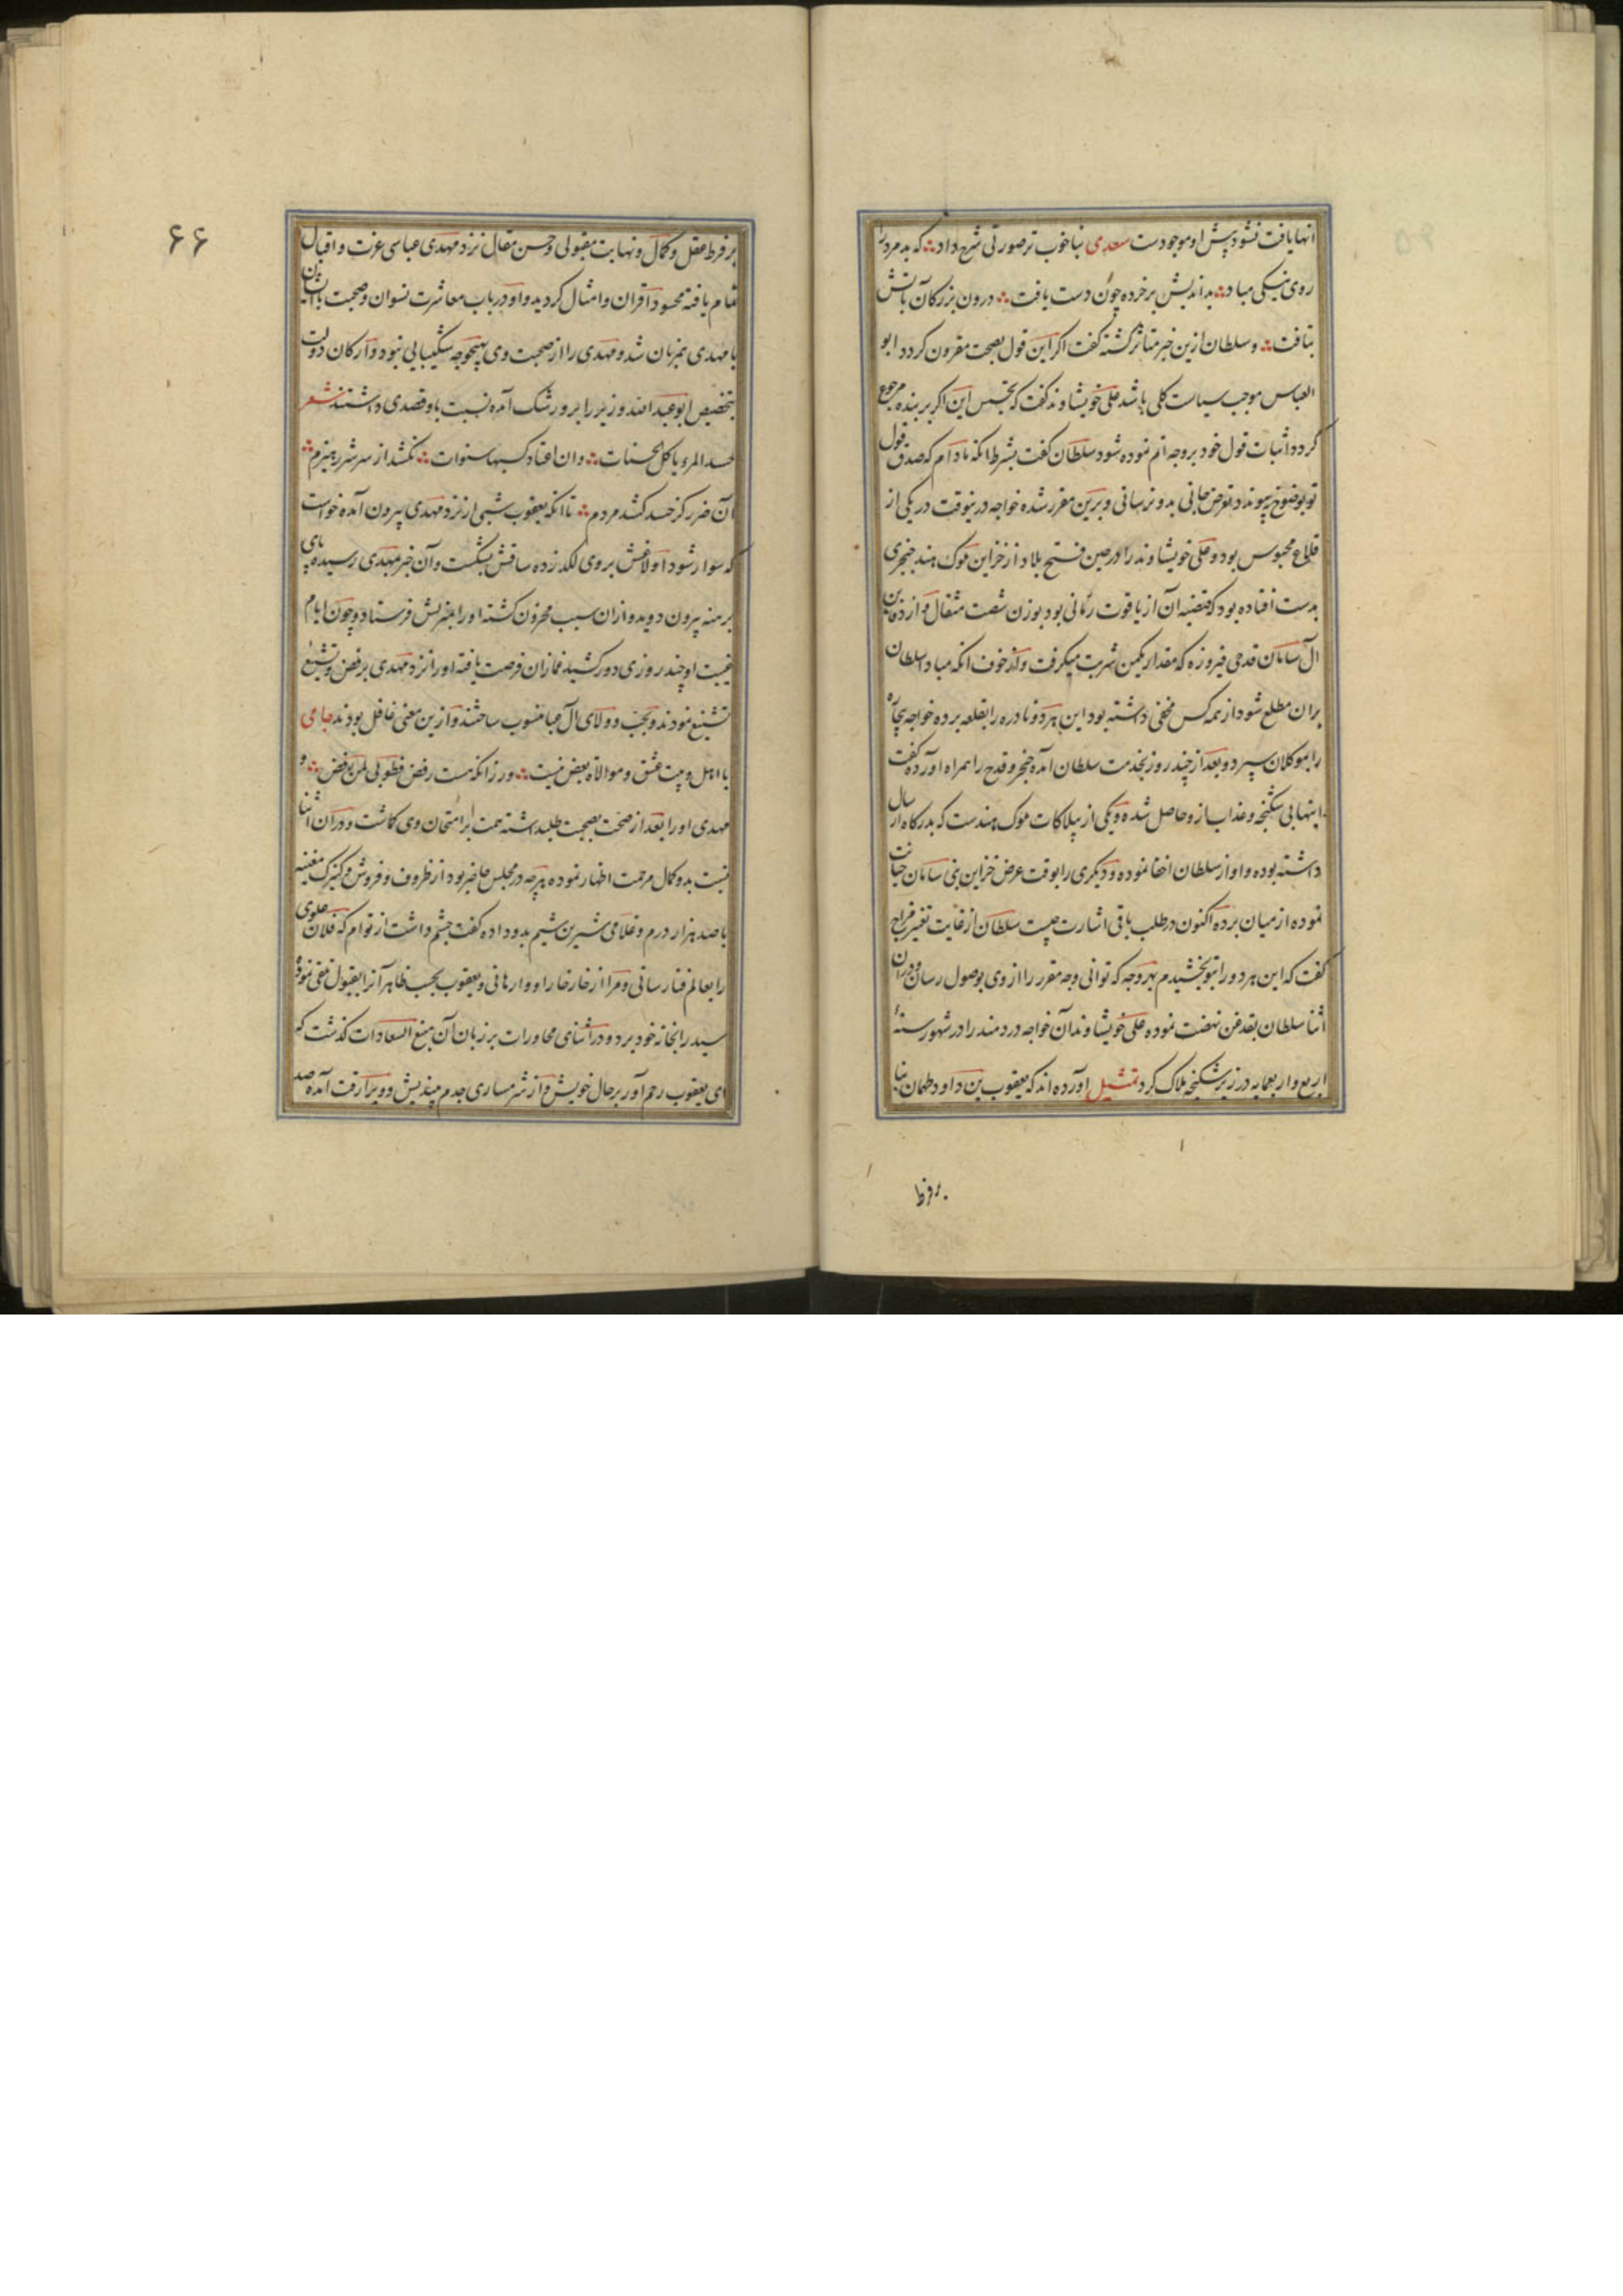 انها یافت نشود پیش او موجودست سعدی بناخوب تر صورتی شرح داد که بد مرد را
روی نیکی مباد بداندیش بر خرده چون دست یافت درون بزرکان باتش
بتافت و سلطان ازین خبر متاثر کشته کفت اکر این قول بصحت مقرون کردد ابو
العباس موجب سیاست کلی باشد علی خویشاوند کفت که تجسس این اکر ببنده مرجوع
کردد اثبات قول خود بر وجه اتم نموده شود سلطان کفت بشرط انکه مادام که صدق قول
تو بوضوح پیوندد تعرض جانی بدو نرسانی و برین مقرر شده خواجه درینوقت در یکی از
قلاع محبوس بود و علی خویشاوند را در حین فتح بلاد از خزاین ملوک هند خنجری
بدست افتاده بود که قبضه آن از یاقوت رمانی بود بوزن شصت مثقال و از دفاین
آل سامان قدحی فیروزه که مقدار یکمن شربت میکرفت و از خوف انکه مبادا سلطان
بران مطلع شود از همه کس مخفی داشته بود این هر دو نادره را بقلعه برده خواجه بیچاره
را بموکلان سپرد و بعد از چند روز بخدمت سلطان آمده خنجر و قدح را همراه آورده کفت
اینها بی شکنجه و عذاب ازو حاصل شده و یکی از پیلاکات ملوک هندست که بدرکاه ارسال
داشته بوده و او از سلطان اخفا نموده و دیکری را بوقت عرض خزاین بنی سامان خیانت
نموده از میان برده اکنون در طلب باقی اشارت چیست سلطان از غایت تغیر مزاج
کفت که این هر دو را بتو بخشیدم بهر وجه که توانی وجه مقرر را از وی بوصول رسان و دران
اثنا سلطان بقدغن نهضت نموده علی خویشاوند آن خواجه دردمند را در شهور سنهٔ
اربع و اربعمایه در زیر شکنجه هلاک کرد تمثیل آورده اند که یعقوب بن داود طهمان بنا
بر فرط
۶۶
بر فرط عقل و کمال و نهایت مقبولی و حسن مقال نزد مهدی عباسی عزت و اقبال
تمام یافته محسود اقران و امثال کردید و او در باب معاشرت نسوان و صحبت باایشان
با مهدی همزبان شد و مهدی را از صحبت وی بهیچوجه شکیبایی نبود و ارکان دولت
بتخصیص ابو عبد الله وزیر را برو رشک آمده نسبت باو قصدی داشتند شعر
حسد المرء یاکل الحسنات و ان اعتاد کسبها سنوات نکشد از سر شرر هیزم
آن ضرر کز حسد کشد مردم تا انکه یعقوب شبی از نزد مهدی بیرون آمده خواست
که سوار شود اولاغش بر وی لکد زده ساقش بشکست و آن خبر بمهدی رسیده پای
برهنه بیرون دوید و ازان سبب محزون کشته او را بمنزلش فرستاد و چون ایام
غیبت او چند روزی دور کشید غمازان فرصت یافته او را نزد مهدی برفض و تشیع
تشنیع نمودند و بحب و ولای آل عبا منسوب ساختند و ازین معنی غافل بودند جامی
با اهل بیت عشق و موالاة بعض نیست ور زانکه هست رفض فطوبی لمن رفض و
مهدی او را بعد از صحت بصحبت طلبداشته همت بر امتحان وی کماشت و دران اثنا
نسبت بدو کمال مرحمت اظهار نموده هر چه در مجلس حاضر بود از ظروف و فروش و کنیزک مغنیه
با صد هزار درم و غلامی شیرین شیم بدو داده کفت چشم داشت از تو ام که فلان علوی
را بعالم فنا رسانی و مرا از خار خار او وارهانی و یعقوب بحسب ظاهر آنرا بقبول تلقی نموده
سید را بخانه خود برد و در اثنای محاورات بر زبان آن منبع السعادات کذشت که
ای یعقوب رحم آور بر حال خویش و از شرمساری جدم بیندیش و ویرا رقت آمده صد